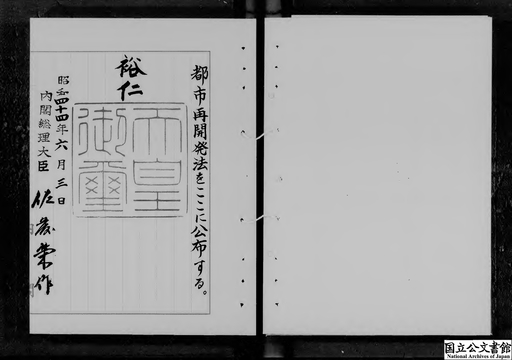 都市再開発法をここに公布する。
裕仁
天皇御璽
昭和四十四年六月三日
内閣総理大臣 佐藤榮作
国立公文書館
National Archives of Japan